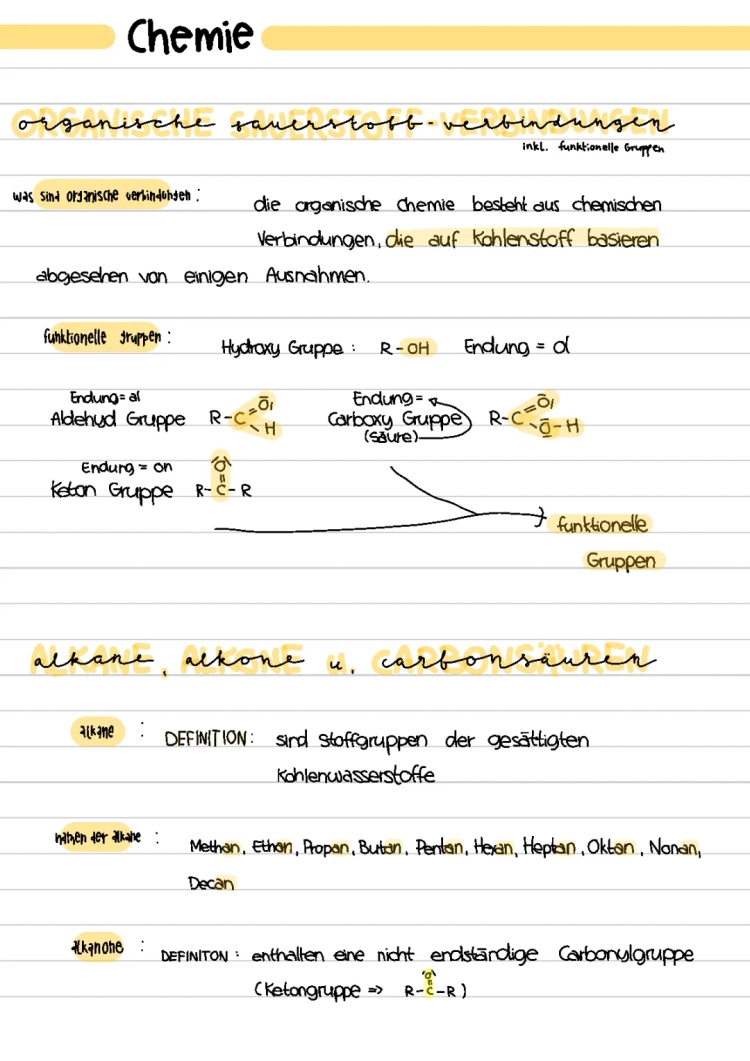 Chemie
ORGANISCHE SAUERSTOFF-VERBINDUNGEN
inkl. funktionelle Gruppen
was sind organische verbindungen :
die organische Chemie besteht aus chemischen
Verbindungen, die auf Kohlenstoff basieren
abgesehen von einigen Ausnahmen.
funktionelle gruppen :
Hydroxy Gruppe : R-OH Endung = ol
Endung= al
Aldehyd Gruppe R-C=O, \H
Endung=
Carboxy Gruppe R-C=O, \O-H
(Säure)
Endung = on
Keton Gruppe R-C-R
O
funktionelle
Gruppen
alkane, alkone u. carbonsäuren
alkane :
DEFINITION : sind Stoffgruppen der gesättigten
Kohlenwasserstoffe
namen der alkane :
Methan, Ethan, Propan, Butan, Pentan, Hexan, Heptan, Oktan, Nonan,
Decan
alkanone :
DEFINITON : enthalten eine nicht endständige Carbonylgruppe
(Ketongruppe => R-C-R)
O